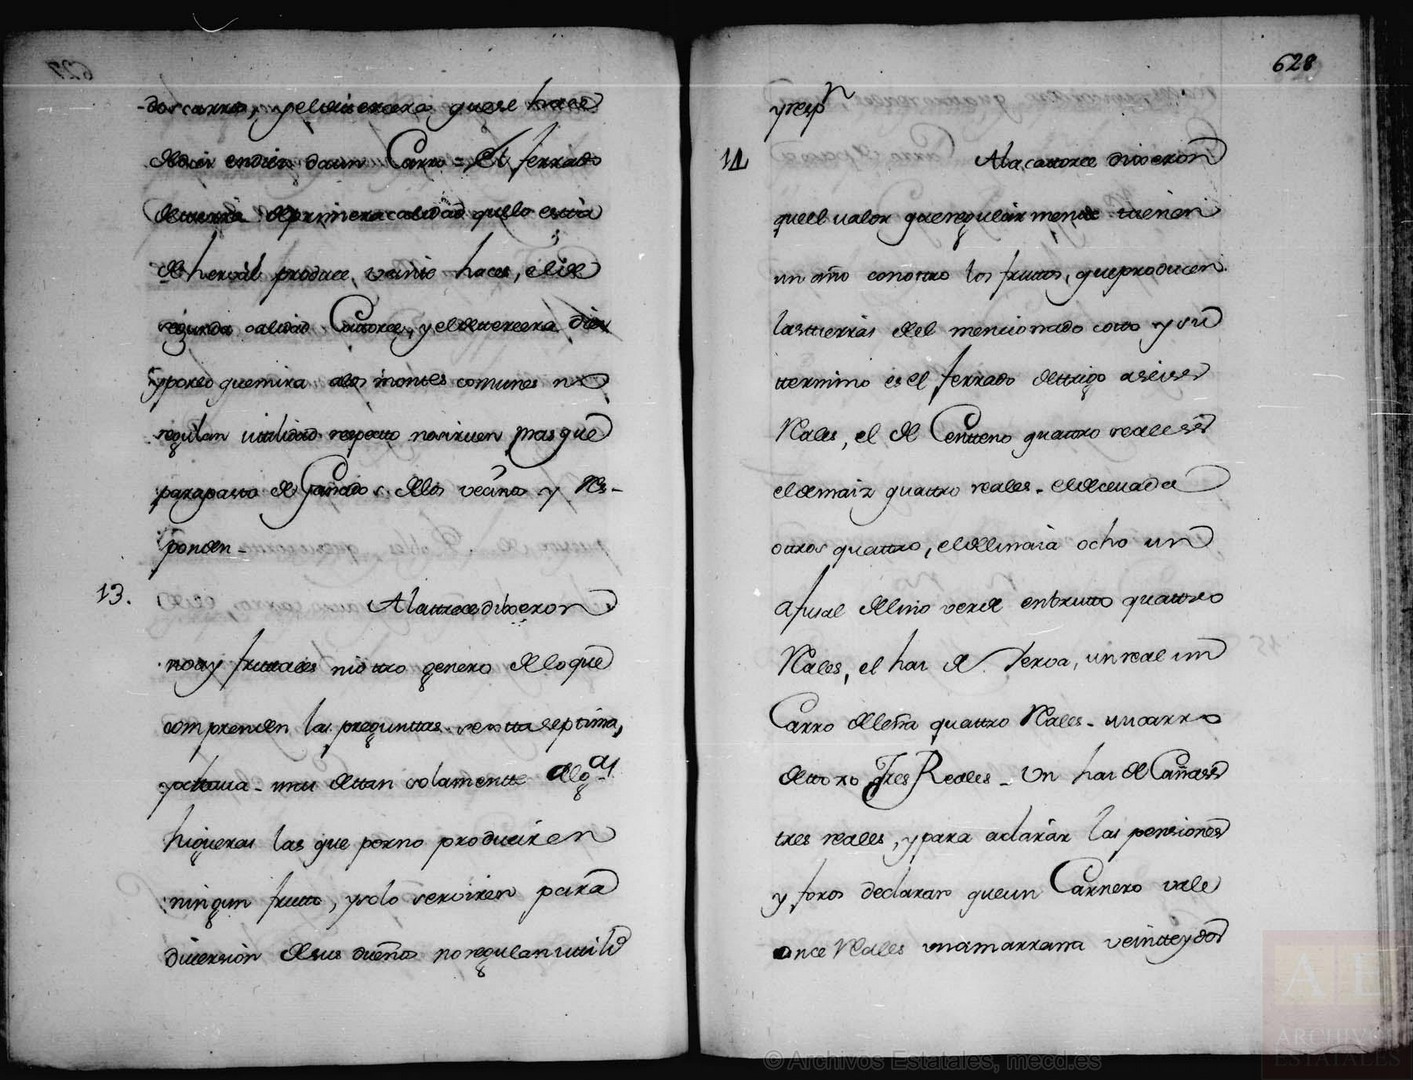 dos carros, y el de tercera que se hace
de diez en diez da un Carro = El ferrado
de tierra de primera calidad que lo está
de herval produce veinte haces, el de
segunda calidad Catorce, y el de tercera diez
y por lo que mira a los montes comunes no
regulan utilidad respecto no sirven mas que
para pasto de Ganados de los vecinos y Res-
ponden -
13. A la trece dixeron
no ay fruttales ni otro genero de lo que
comprenden las preguntas sexta septima,
y octava - mas de tan solamente alg.as
higueras las que por no producir en
ningun frutto, y solo serviren para
diversion de sus dueños no regulan utilid
628
y resp.n
14 A la catorce dixeron
que el valor que regularmente tienen
un año con otro los frutos, que producen
las tierras del mencionado coto y su
termino es el ferrado de trigo a seis
Reales, el de Centeno quatro reales
el de maiz quatro reales - el de cevada
otros quatro, el de linaza ocho un
afusal de lino verde en brutto quattro
Reales, el haz de Yerva, un real un
Carro de leña quattro Reales - un carro
de toxo Tres Reales - Un haz de Cañas
tres reales, y para aclarar las pensiones
y foros declaran que un Carnero vale
once Reales una marrana veinte y dos
© Archivos Estatales, mecd.es
AE
ARCHIVOS
ESTATALES